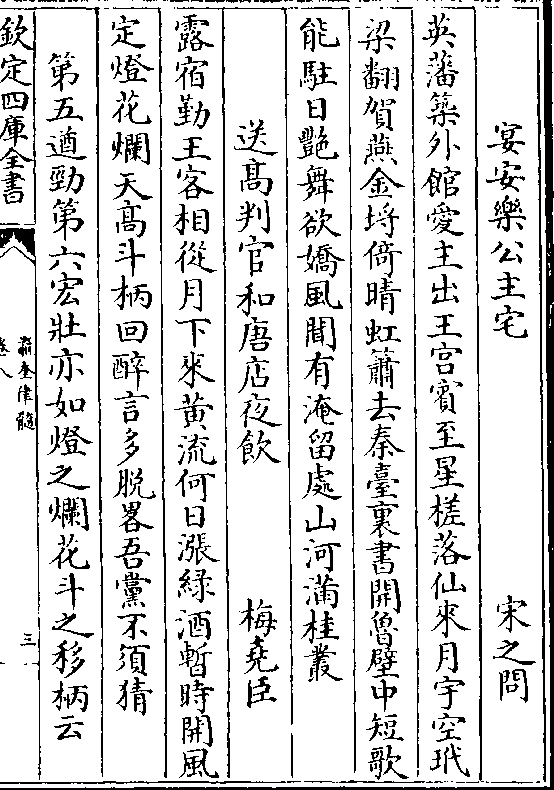 宴安樂公主宅　宋之問
英藩築外館愛主出王宫賔至星槎落仙來月宇空玳
梁翻賀燕金埒倚晴虹簫去秦臺裏書開魯壁中短歌
能駐日艶舞欲嬌風聞有淹留處山河滿桂叢
送髙判官和唐店夜飲　梅堯臣
露宿勤王客相從月下來黄流何日漲緑酒暫時開風
定燈花爛天髙斗柄回醉言多脱畧吾黨不須猜
第五遒勁第六宏壯亦如燈之爛花斗之移柄云
欽定四庫全書
瀛奎律髓
卷八
三